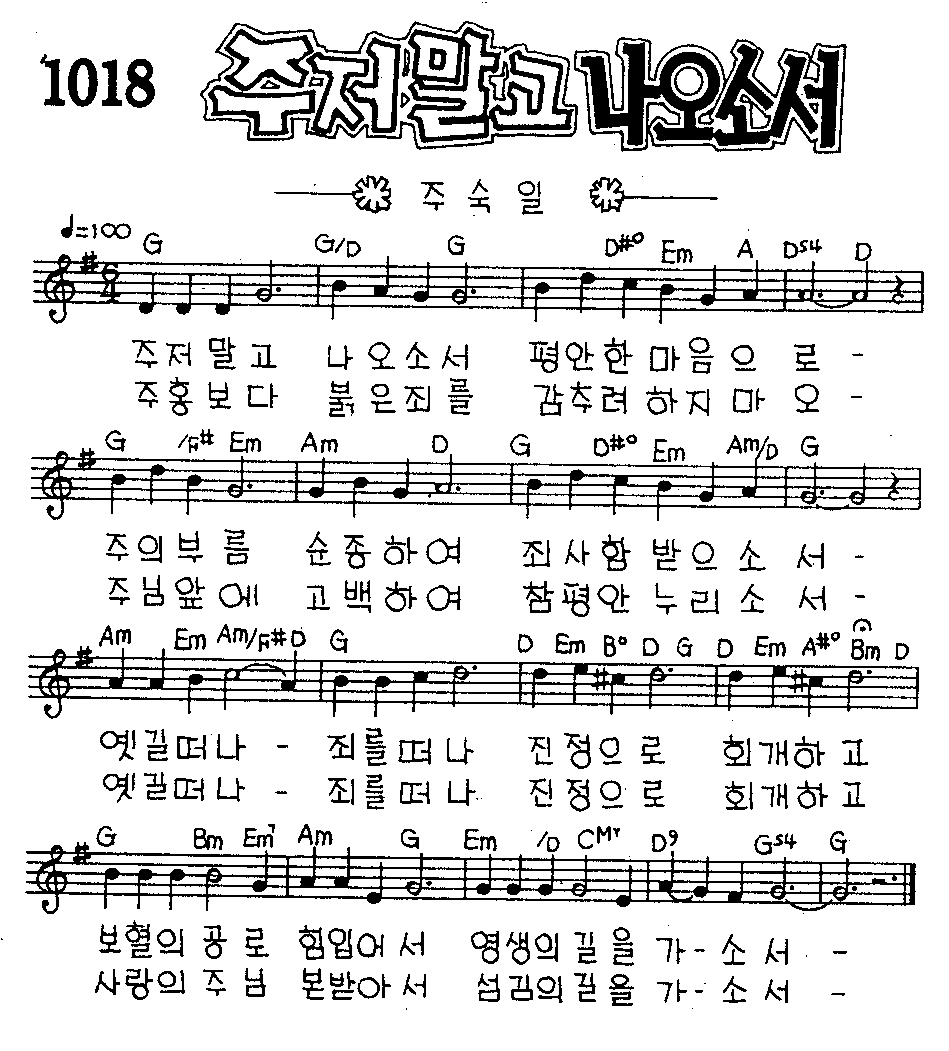 1018 주저말고 나오소서
주숙일
♩=100
G G/D G D#o Em A Ds4 D
6/4
주저말고 나오소서 평안한 마음으로-
주홍보다 붉은죄를 감추려하지마오-
G /F# Em Am D G D#o Em Am/D G
주의부름 순종하여 죄사함 받으소서-
주님앞에 고백하여 참평안 누리소서-
Am Em Am/F# D G D Em Bo D G D Em A#o Bm D
옛길떠나- 죄를떠나 진정으로 회개하고
옛길떠나- 죄를떠나 진정으로 회개하고
G Bm Em7 Am G Em /D D9 Gs4 G
보혈의 공로 힘입어서 영생의길을 가-소서-
사랑의 주님 본받아서 섬김의길을 가-소서-